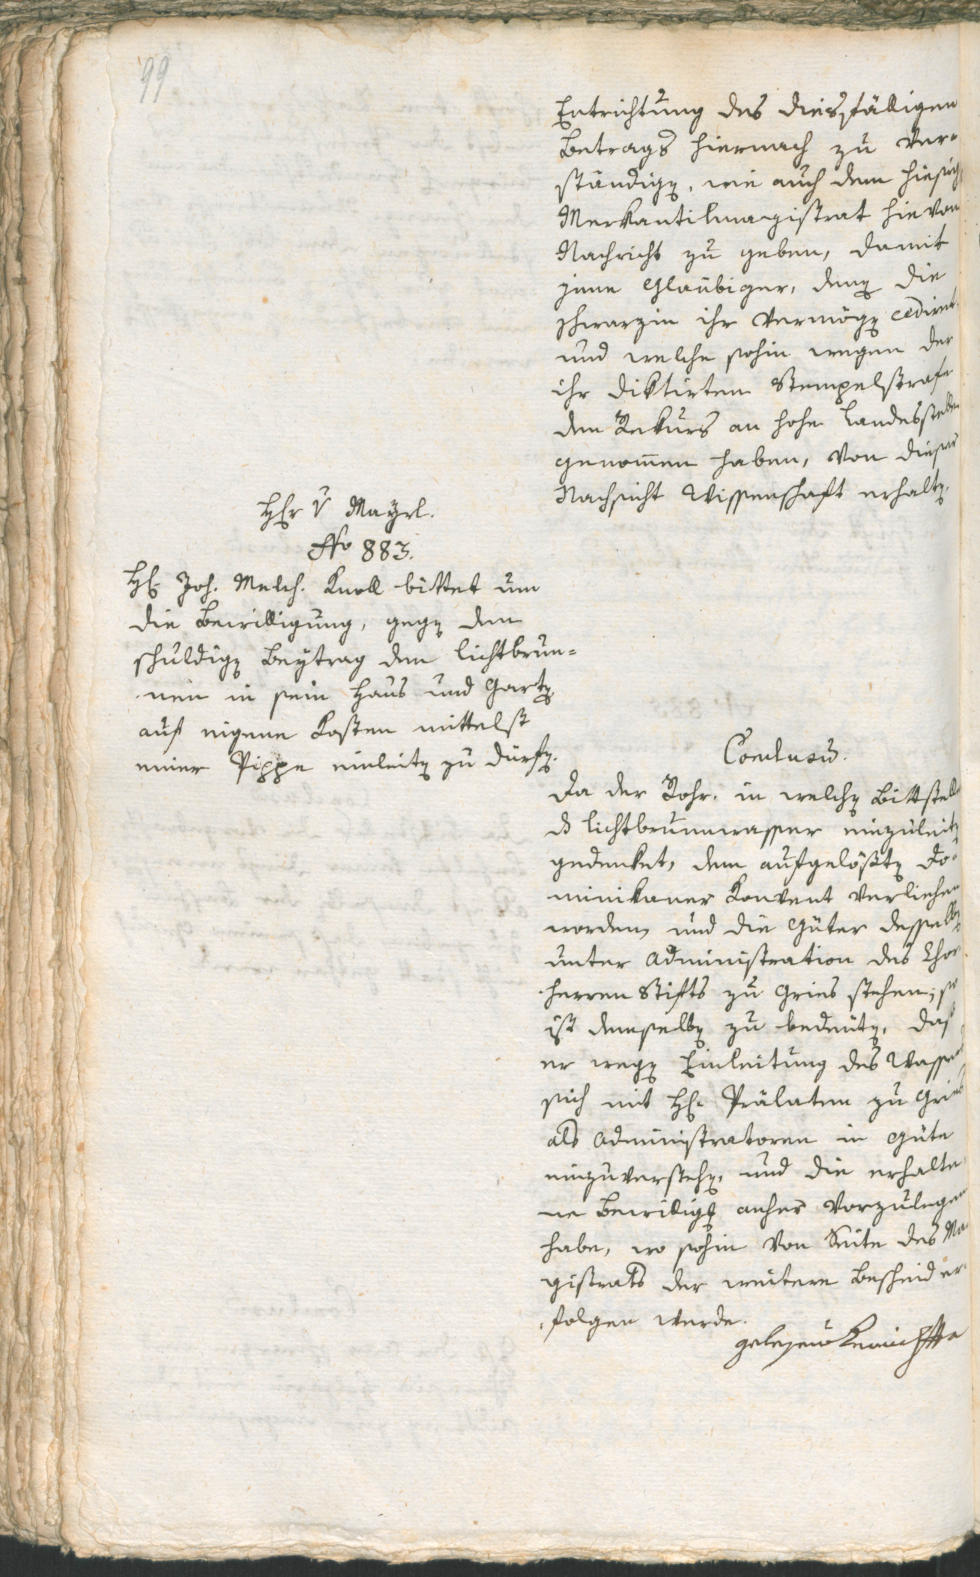 99
Entrichtung des diesfälligen
Betrags hiernach zu ver-
ständigen, wie auch dem hiesig
Merkantilmagistrat hievon
Nachricht zu geben, damit
jene Glaubiger, denen die
Schwarzin ihr Vermögen cediret
und welche sohin wegen der
ihr diktirten Stempelstrafe
den Rekurs an hohe Landesstelle
genommen haben, von dieser
Nachsicht Wissenschaft erhalten.
Hhr v Mayrl.
No 883.
Hh. Joh. Melch. Knoll bittet um
die Bewilligung, gegen dem
schuldigen Beytrag den lichtbrun-
nen in sein Haus und Garten
auf eigene Kosten mittelst
einer Pippe einleiten zu dürfen.
Conclusum.
Da der Rohr, in welchen Bittsteller
das lichtbrunnwasser einzuleiten
gedenket, dem aufgelößten Do-
minikaner Konvent verliehen
worden, und die Güter desselben
unter Administration des Chor-
herren Stifts zu Gries stehen; so
ist demselben zu bedeuten, daß
er wegen Einleitung des Wassers
sich mit Hh. Prälaten zu Gries
als Administratoren in Güte
einzuverstehen, und die erhalte-
ne Bewilligung anher vorzulegen
habe, wo sohin von Seite des Ma-
gistrats der weitere Bescheid er-
folgen werde.